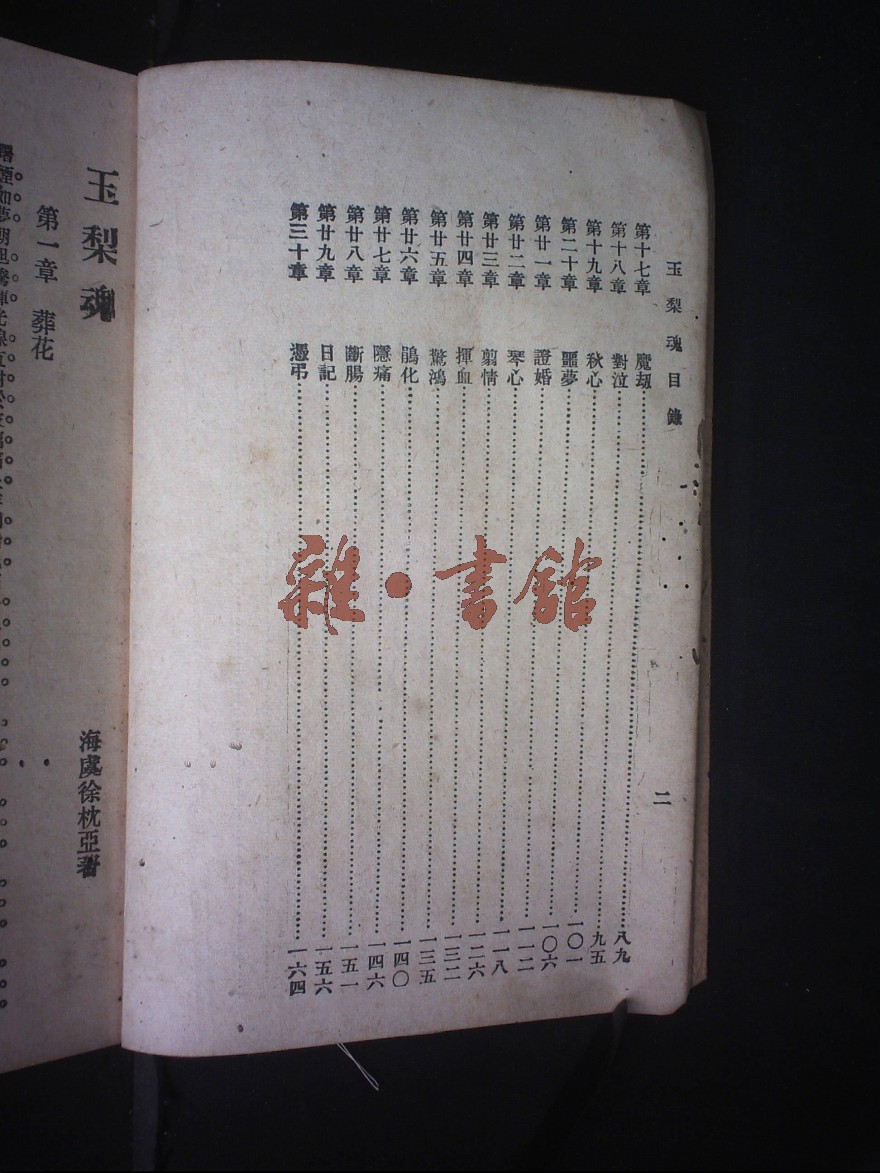 玉梨魂目錄
二
第十七章 魔劫……八九
第十八章 對泣……九五
第十九章 秋心……一〇一
第二十章 噩夢……一〇六
第廿一章 證婚……一一二
第廿二章 琴心……一一八
第廿三章 剪情……一二六
第廿四章 揮血……一三二
第廿五章 驚鴻……一三五
第廿六章 鵑化……一四〇
第廿七章 隱痛……一四六
第廿八章 斷腸……一五一
第廿九章 日記……一五六
第三十章 憑弔……一六四
雜·書館
玉梨魂
海虞徐枕亞著
第一章 葬花
曙煙如夢朝旭騰輝光線直射於